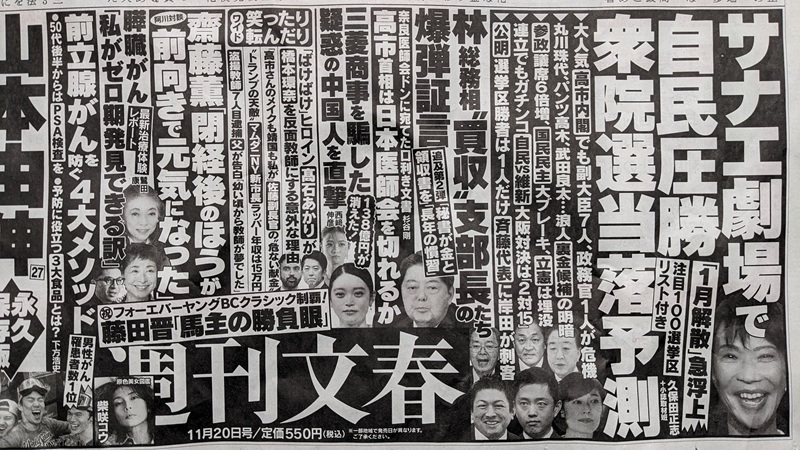 サナエ劇場で
自民圧勝
「1月解散」急浮上
衆院選当落予測
注目100選挙区
リスト付き
久保田正志
+小誌取材班
大人気高市内閣でも副大臣7人、政務官1人が危機
丸川珠代、パンツ高木、武田良太…浪人 裏金候補の明暗
参政議席6倍増、国民民主大ブレーキ、立憲は埋没
連立でもガチンコ 自民vs維新 大阪対決は2対15
公明選挙区勝者は1人だけ 斉藤代表に岸田が刺客
林総務相"買収"支部長たちの
爆弾証言
追及第2弾
「秘書が金と
領収書を」「長年の慣習」
奈良医師会ドンに宛てた口利き文書
杉谷剛
高市首相は日本医師会を切れるか
三菱商事を騙した
疑惑の中国人を直撃
138億円が
消えた!
西崎伸彦
たっ
ぷり
笑転
「ばけばけ」ヒロイン髙石あかりが
橋本環奈を反面教師にする意外な理由
「高市さんのメイクも靖国も私が」佐藤副長官の"危ない献金"
"トランプの天敵"マムダニN・新市長 ラッパー年収は15万円
盗撮教師7人目逮捕 父が告白「幼い頃から教師が夢でした」
阿川対談
齋藤薫「閉経後のほうが
前向きで元気になった」
膵臓がん
最新治療体験
レポート
私がゼロ期発見できる訳
前立腺がんを
防ぐ4大メソッド
●50代後半からは「PSA検査」を●予防に役立つ「3大食品」とは?
下方浩史
男性がん
罹患者数1位
山本由伸
27
永久
保存版
祝
フォーエバーヤングBCクラシック制覇!
藤田晋「馬主の勝負眼」
週刊文春
原色美女図鑑
柴咲コウ
11月20日号/定価550円(税込)
※一部地域で発売日が異なります。
ご了承ください。